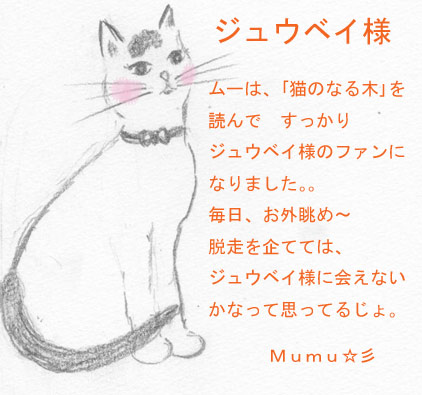 ジュウベイ様
ムーは、「猫のなる木」を
読んで　すっかり
ジュウベイ様のファンに
なりました。。
毎日、お外眺め～
脱走を企てては、
ジュウベイ様に会えない
かなって思ってるじょ。
Ｍｕｍｕ☆彡